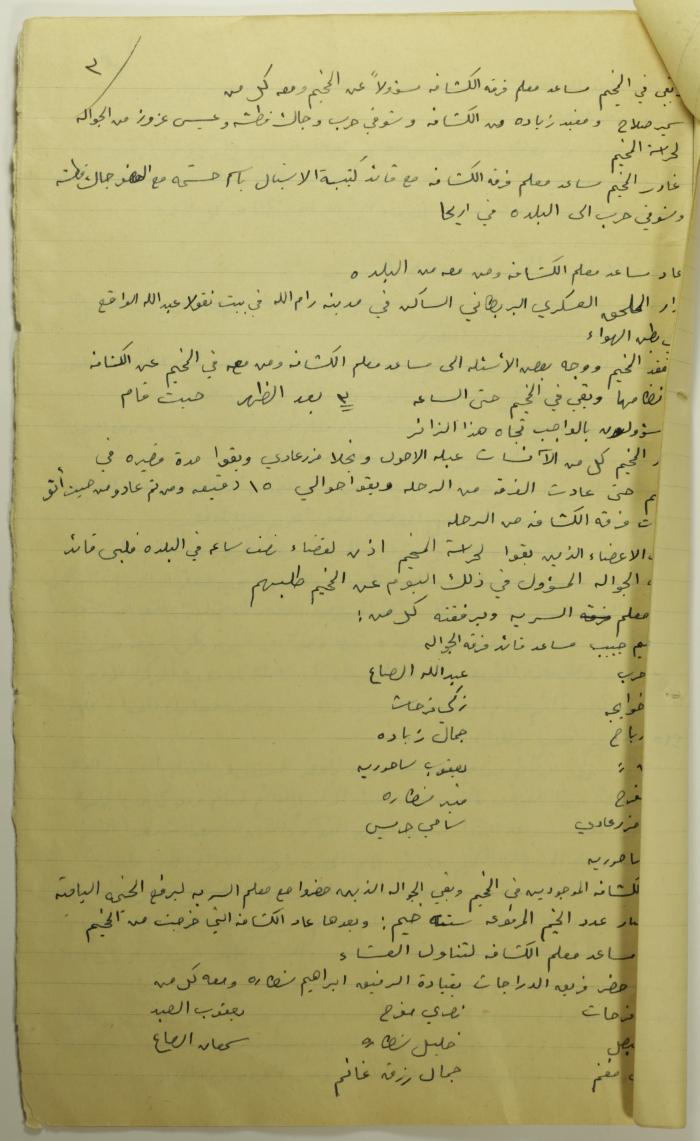 ٣
بقي في المخيم مساعد معلم فرقة الكشافه مسؤولاً عن المخيم ومعه كل من
سمير صلاح ومفيد زياده من الكشافه وشوقي حرب وجاك قطشه وعيسى عزوز من الجواله
لحراسة المخيم
غادر المخيم مساعد معلم فرقة الكشافه مع قائد كتيبة الاستقبال باسم حشمه مع جاك قطشه
وشوقي حرب الى البلده في اريحا
عاد مساعد معلم الكشافه ومن معه من البلده
زار الملحق العسكري البريطاني الساكن في مدينه رام الله في بيت نقولا عبدالله الواقع
في بطن الهواء
تفقد المخيم ووجه بعض الأسئله الى مساعد معلم الكشافه ومن معه في المخيم عن الكشافه
نظامها وبقي في المخيم حتى الساعه ٣ بعد الظهر حيث قام
المسؤولون بالواجب تجاه هذا الزائر
المخيم كل من الآنسات عبله الاحول ونجلا مزرعاوي وبقوا مدة قصيره في
حتى عادت الفرقه من الرحله وبقوا حوالي ١٥ دقيقه ومن ثم عادو من حيث أتو
فرقه الكشافه من الرحله
الاعضاء الذين بقوا لحراسة المخيم اذن لقضاء نصف ساعه في البلده فلبى قائد
الجواله المسؤول في ذلك اليوم عن المخيم طلبهم
معلم السريه وبرفقته كل من :
حبيب مساعد قائد فرقه الجواله
حرب عبدالله الصاع
زكي فرحات
رباح جمال زياده
يعقوب ساحوريه
منير نظاره
مزرعاوي سامي جريس
ساحوريه
الكشافه الموجودين في المخيم وبقي الجواله الذين حضروا مع معلم السريه لرفع الخيم الباقيه
عدد الخيم المرفوعه سته خيم : وبعدها عاد الكشافه التي خرجت من المخيم
مساعد معلم الكشافه لتناول العشاء
حضر فريق الدراجات بقيادة الرفيق ابراهيم نظاره ومعه كل من
فرحات نصري مفرح يعقوب الصيد
خليل نظاره سمعان الصاع
مغنم جمال رزق غانم